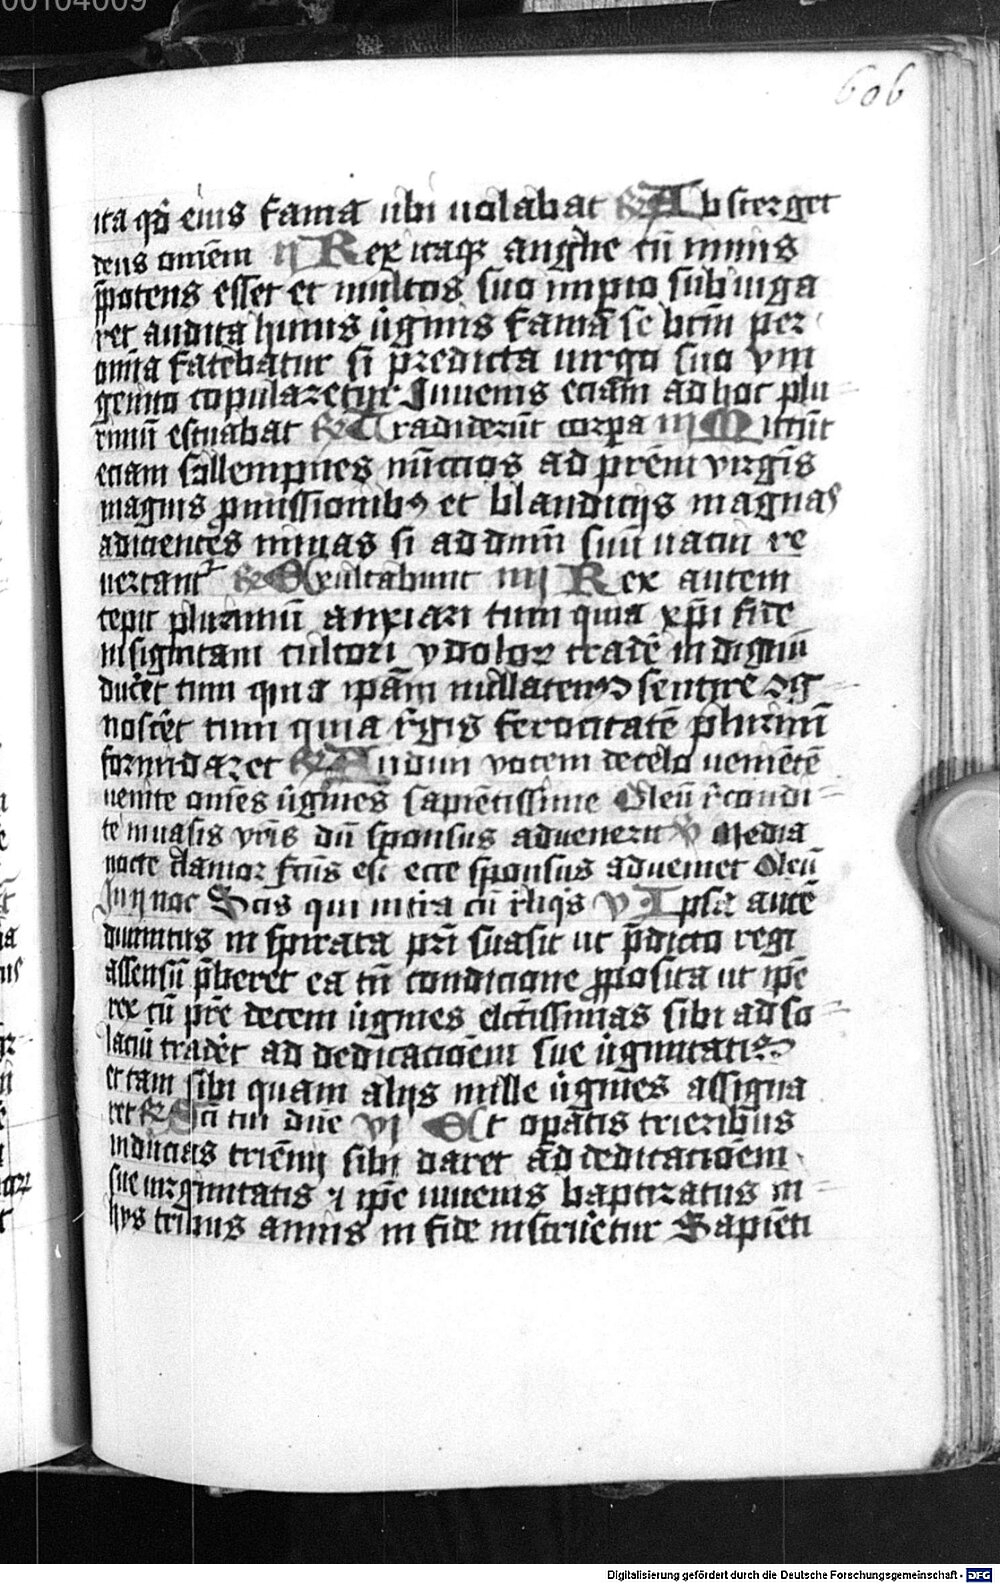 00104009
606
ita qd̄ eius fama ubi uolabat ℟ Absterget
deus omēm ij Rex itaqꝫ anglie cū nimis
p̄potens esset et multos suo imp̄io subiuga
ret audita huius ũginis famā se btm̄ per
om̄ia fatebatur si predicta uirgo suo vni
genito copularetur Juuenis eciam ad hoc plu-
rimū estuabat ℟ Tradiderūt corpa iij Mittūt
eciam sollempnes nūccios ad prēm virgīs
magnis ꝓmissionibꝰ et blandicijs magnas
adicientes minas si ad dnm̄ suū uacui re
uertant᷑ ℟ Exultabunt iiij Rex autem
cepit plurimū anxiari tum quia xp̄i fide
insignitam cultori ydoloꝝ tradē indignū
ducēt tum quia ip̄am nullatenꝰ sentire ꝯg-
noscēt tum quia r̄gis ferocitatē plurimū
formidaret ℟ Audiui vocem de celo ueniētē
uenite om̄es ũgines sapiētissime Oleū r̄condi-
te in uasis vr̄is dū sponsus aduenerit ℣ Media
nocte clamor fc̄us est ecce sponsus adueniet Oleū
In ij noc Scis qui intra cū rliqis v Ipsa autē
diuinitus inspirata pr̄i suasit ut p̄dicto regi
assensū p̄beret ea tn̄ condicione ꝓposita ut ip̄e
rex cū pr̄e decem ũgines elc̄tissimas sibi ad so-
laciū tradēt ad dedicacioēm sue ũginitatis
et tam sibi quam alijs mille ũgines assigna
ret ℟ Sc̄i tui dn̄e vj Et opātis trieribus
inducias triēnij sibi daret ad dedicacioēm
sue uirginitatis ⁊ ip̄e iuuenis baptizatus in-
hys tribus annis in fide instruēetur Sapiēti
Digitalisierung gefördert durch die Deutsche Forschungsgemeinschaft - DFG